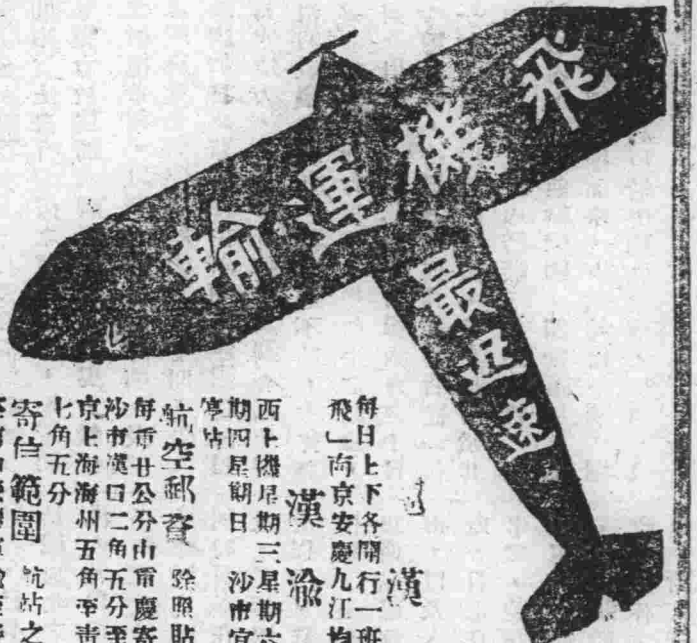 飛機運輸
最迅速
漢
每日上下各開行一班
飛」南京安慶九江均
漢渝
西上機星期三星期六
期四星期日 沙市宜
停站
航空郵資 除照貼
每重廿公分由重慶寄
沙市漢口二角五分至
京上海海州五角至青
七角五分
寄信範圍 航站之